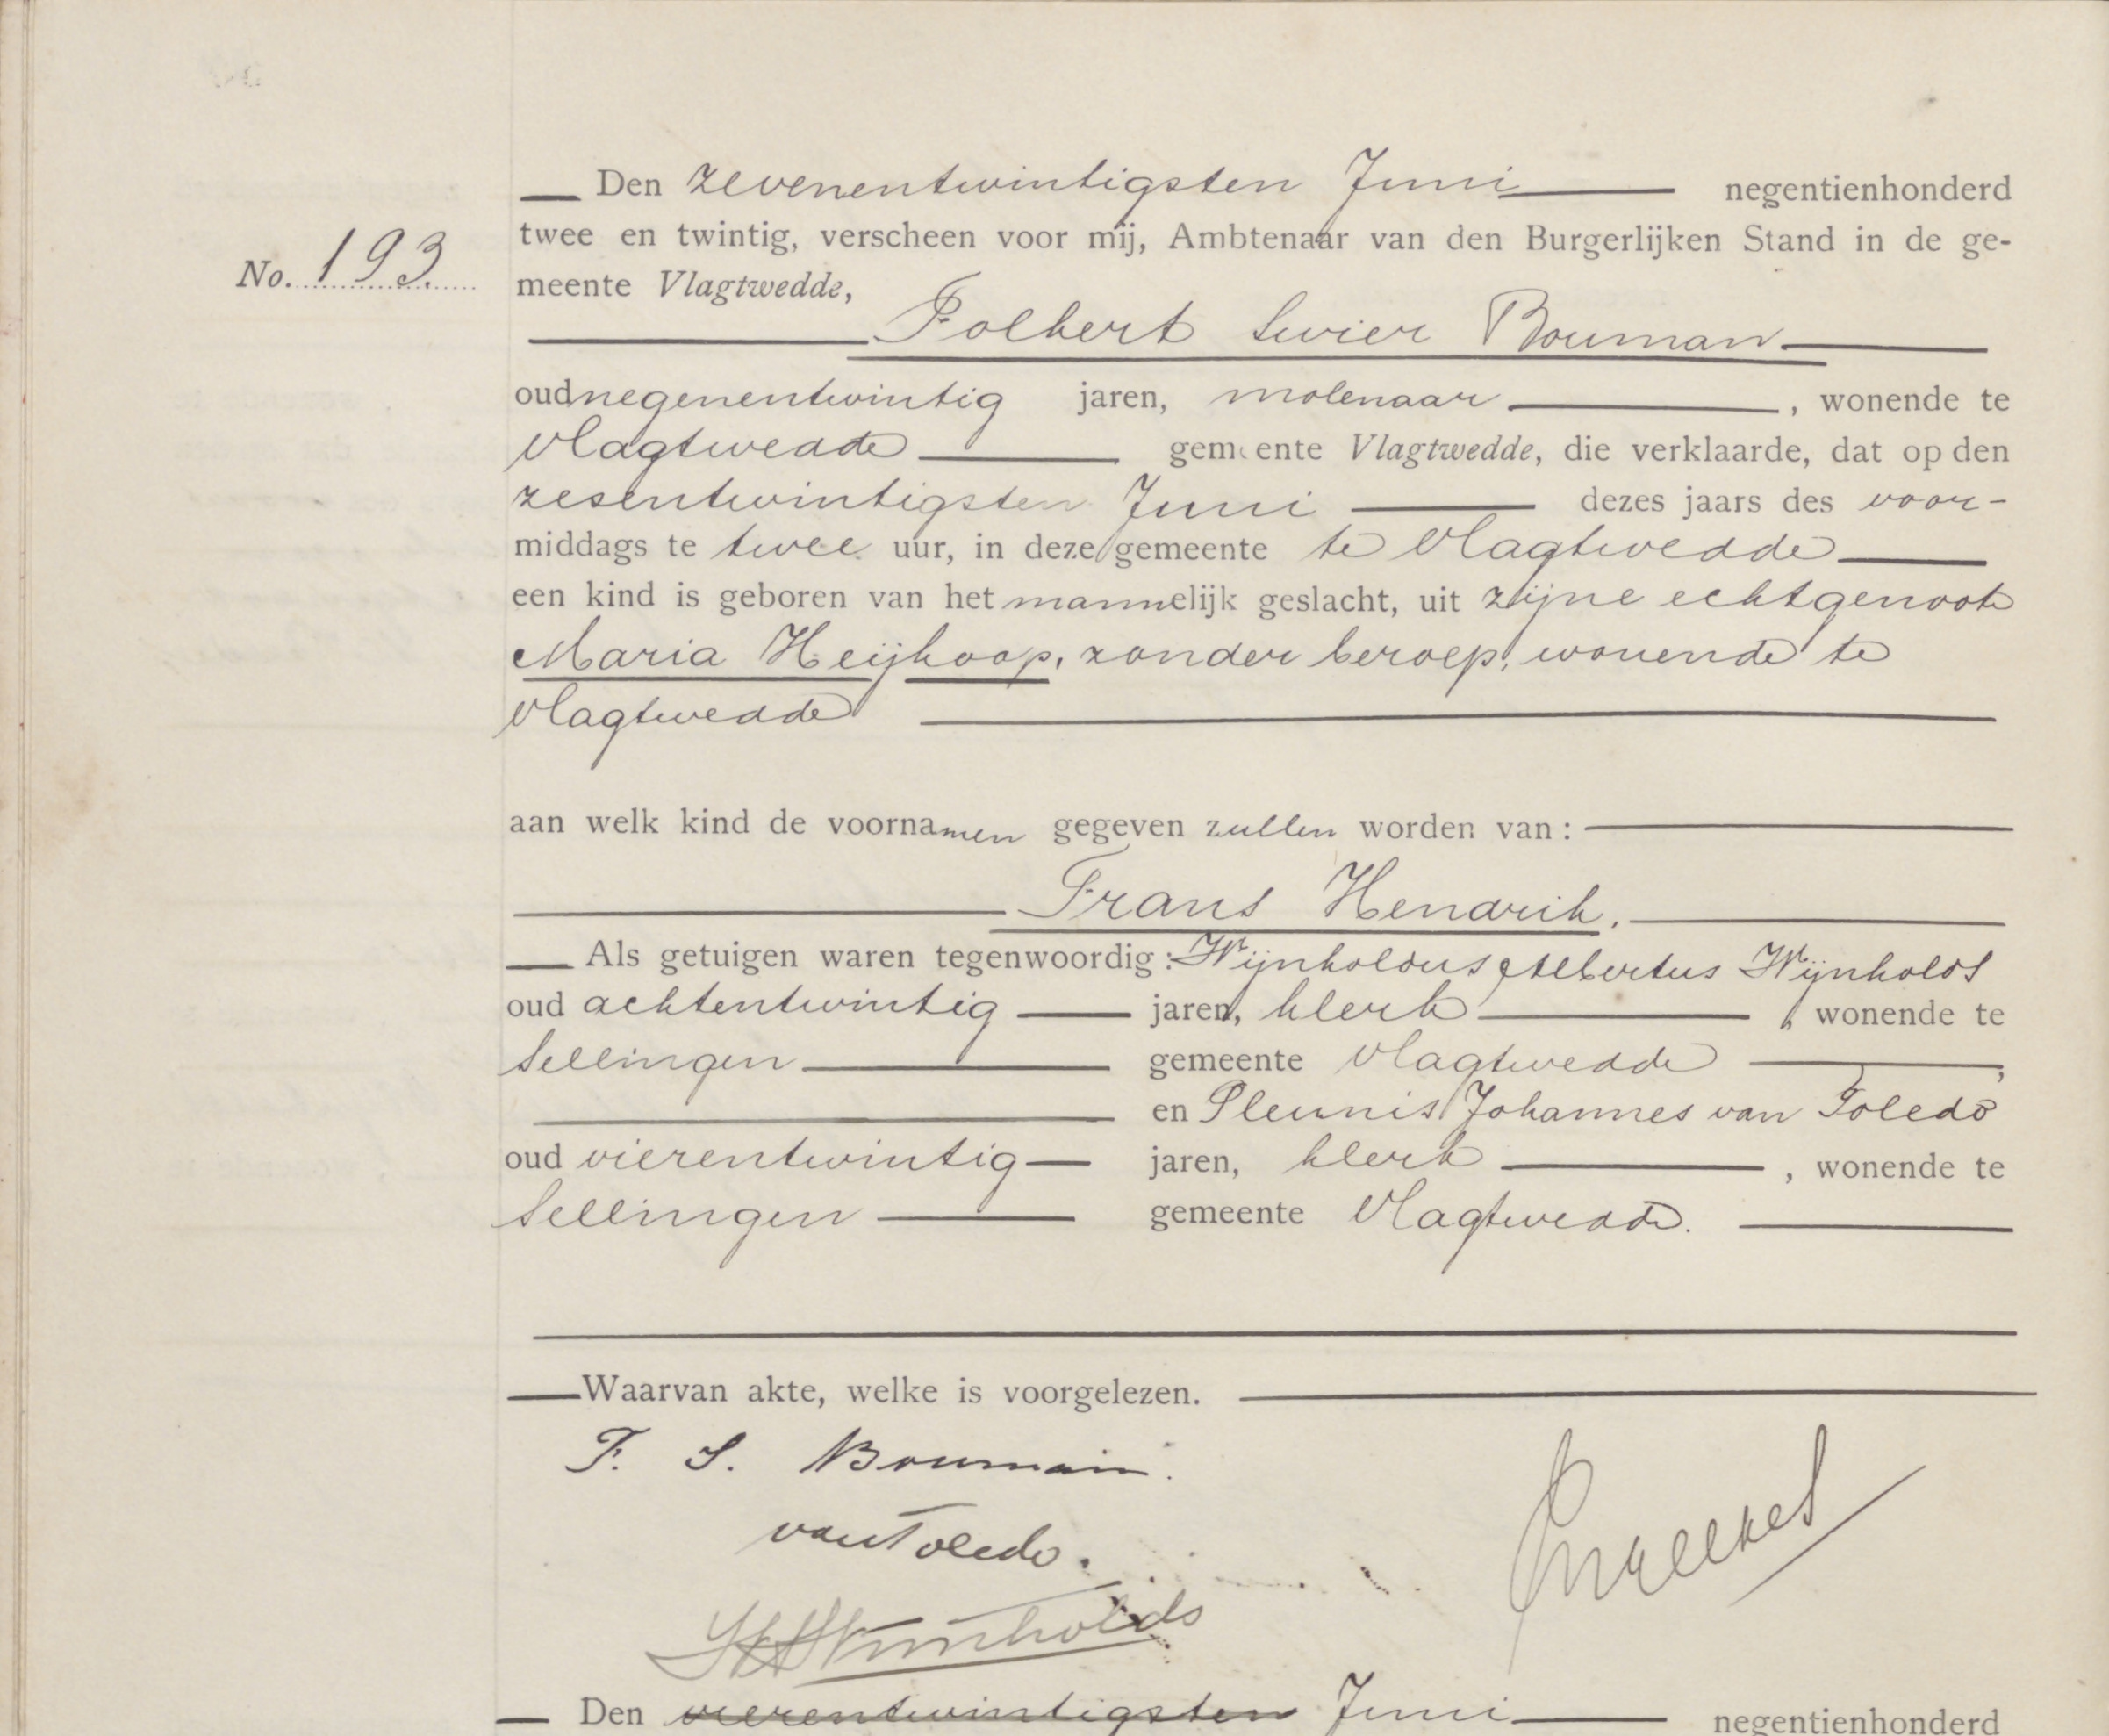 Den zevenentwintigsten Juni negentienhonderd
twee en twintig, verscheen voor mij, Ambtenaar van den Burgerlijken Stand in de ge-
No. 193. meente Vlagtwedde,
Folkert Swier Bouman
oud negenentwintig jaren, molenaar, wonende te
Vlagtwedde gemeente Vlagtwedde, die verklaarde, dat op den
zesentwintigsten Juni dezes jaars des voor-
middags te twee uur, in deze gemeente te Vlagtwedde
een kind is geboren van het mannelijk geslacht, uit zijne echtgenoote
Maria Heijkoop, zonder beroep, wonende te
Vlagtwedde
aan welk kind de voornamen gegeven zullen worden van:
Frans Hendrik.
Als getuigen waren tegenwoordig: Wijnholdus Albertus Wijnholds
oud achtentwintig jaren, klerk, wonende te
Sellingen gemeente Vlagtwedde,
en Pleunis Johannes van Toledo
oud vierentwintig jaren, klerk, wonende te
Sellingen gemeente Vlagtwedde.
Waarvan akte, welke is voorgelezen.
F. S. Bouman.
van Toledo.
Wijnholds
Den vierentwintigsten Juni negentienhonderd